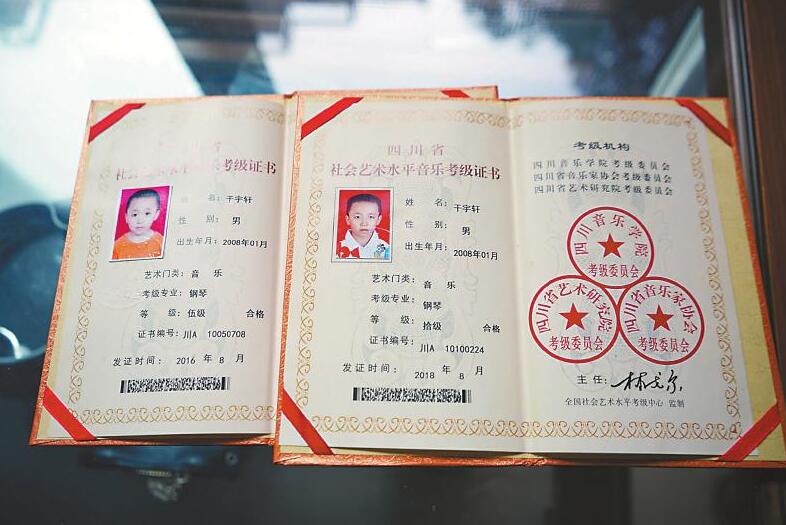 四川省
社会艺术水平音乐考级证书
姓 名：干宇轩
性 别： 男
出生年月：2008年01月
艺术门类：音 乐
考级专业：钢琴
等 级：伍级 合格
证书编号：川ⅠA 10050708
发证时间：2016 年 8 月
四川省
社会艺术水平音乐考级证书
姓 名：干宇轩
性 别： 男
出生年月：2008年01月
艺术门类：音 乐
考级专业：钢琴
等 级：拾级 合格
证书编号：川ⅠA 10100224
发证时间：2018 年 8 月
考级机构
四川音乐学院考级委员会
四川省音乐家协会考级委员会
四川省艺术研究院考级委员会
四川音乐学院
考级委员会
四川省艺术研究院
考级委员会
四川省音乐家协会
考级委员会
主 任：
全国社会艺术水平考级中心 监制